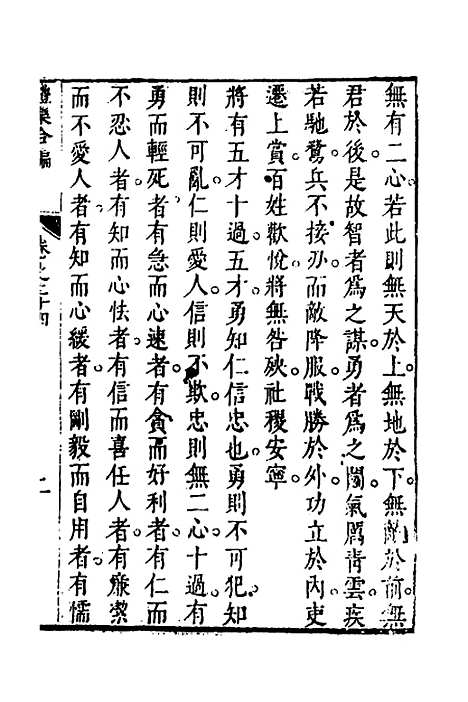 無有二心若此則無天於上無地於下無敵於前無
君於後是故智者爲之謀勇者爲之鬬氣厲青雲疾
若馳騖兵不接刃而敵降服戰勝於外功立於內吏
遷上賞百姓歡悅將無咎殃社稷安寧
將有五才十過五才勇知仁信忠也勇則不可犯知
則不可亂仁則愛人信則不欺忠則無二心十過有
勇而輕死者有急而心速者有貪而好利者有仁而
不忍人者有知而心怯者有信而喜任人者有廉潔
而不愛人者有知而心緩者有剛毅而自用者有懦
樂合編 卷之三十四